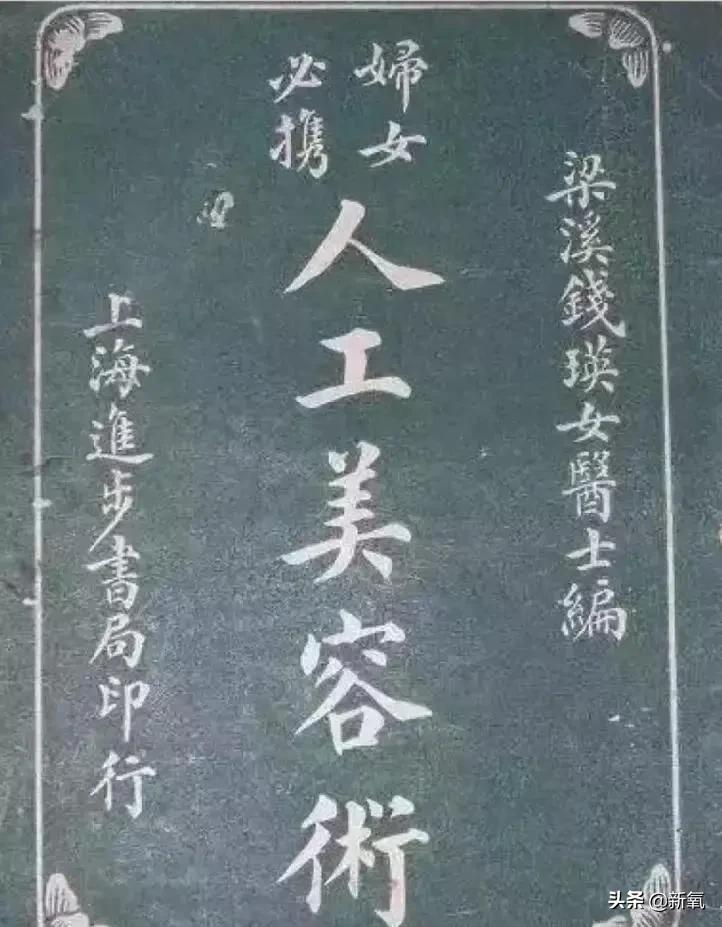 梁溪錢瑛女醫士編
婦女
必攜
人工美容術
上海進步書局印行
头条 @新氧